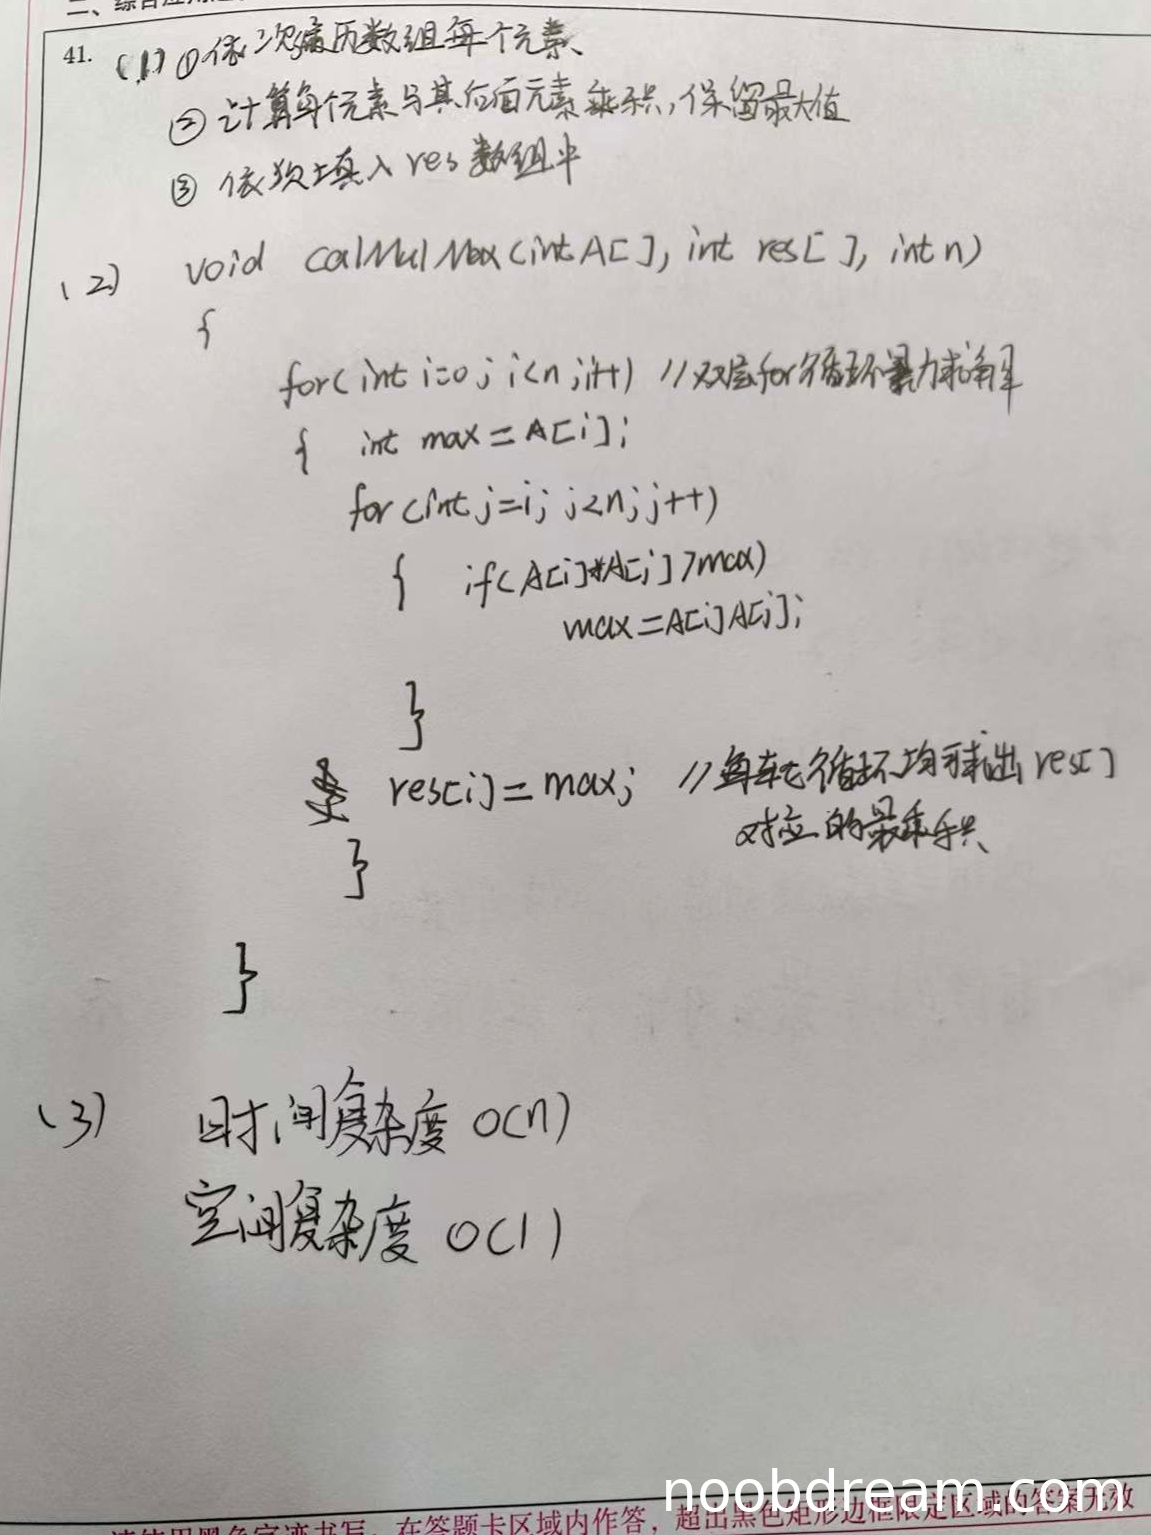 二、综合应用题
41. (1) ①依次遍历数组每个元素、
②计算每个元素与其后面元素乘积,保留最大值
③ 依次填入 res 数组中
(2) void CalMulMax(int A[], int res[], int n)
{
for(int i=0; i<n; i++) //双层for循环暴力求解
{ int max = A[i];
for(int j=i; j<n; j++)
{ if(A[i]*A[j]>max)
max=A[i]A[j];
}
res[i]=max; //每轮循环均可求出res[]
对应的最乘积、
}
}
(3) 时间复杂度 O(n)
空间复杂度 O(1)
noobdream.com
请使用黑色字迹书写,在答题卡区域内作答,超出黑色矩形边框限定区域的答案无效